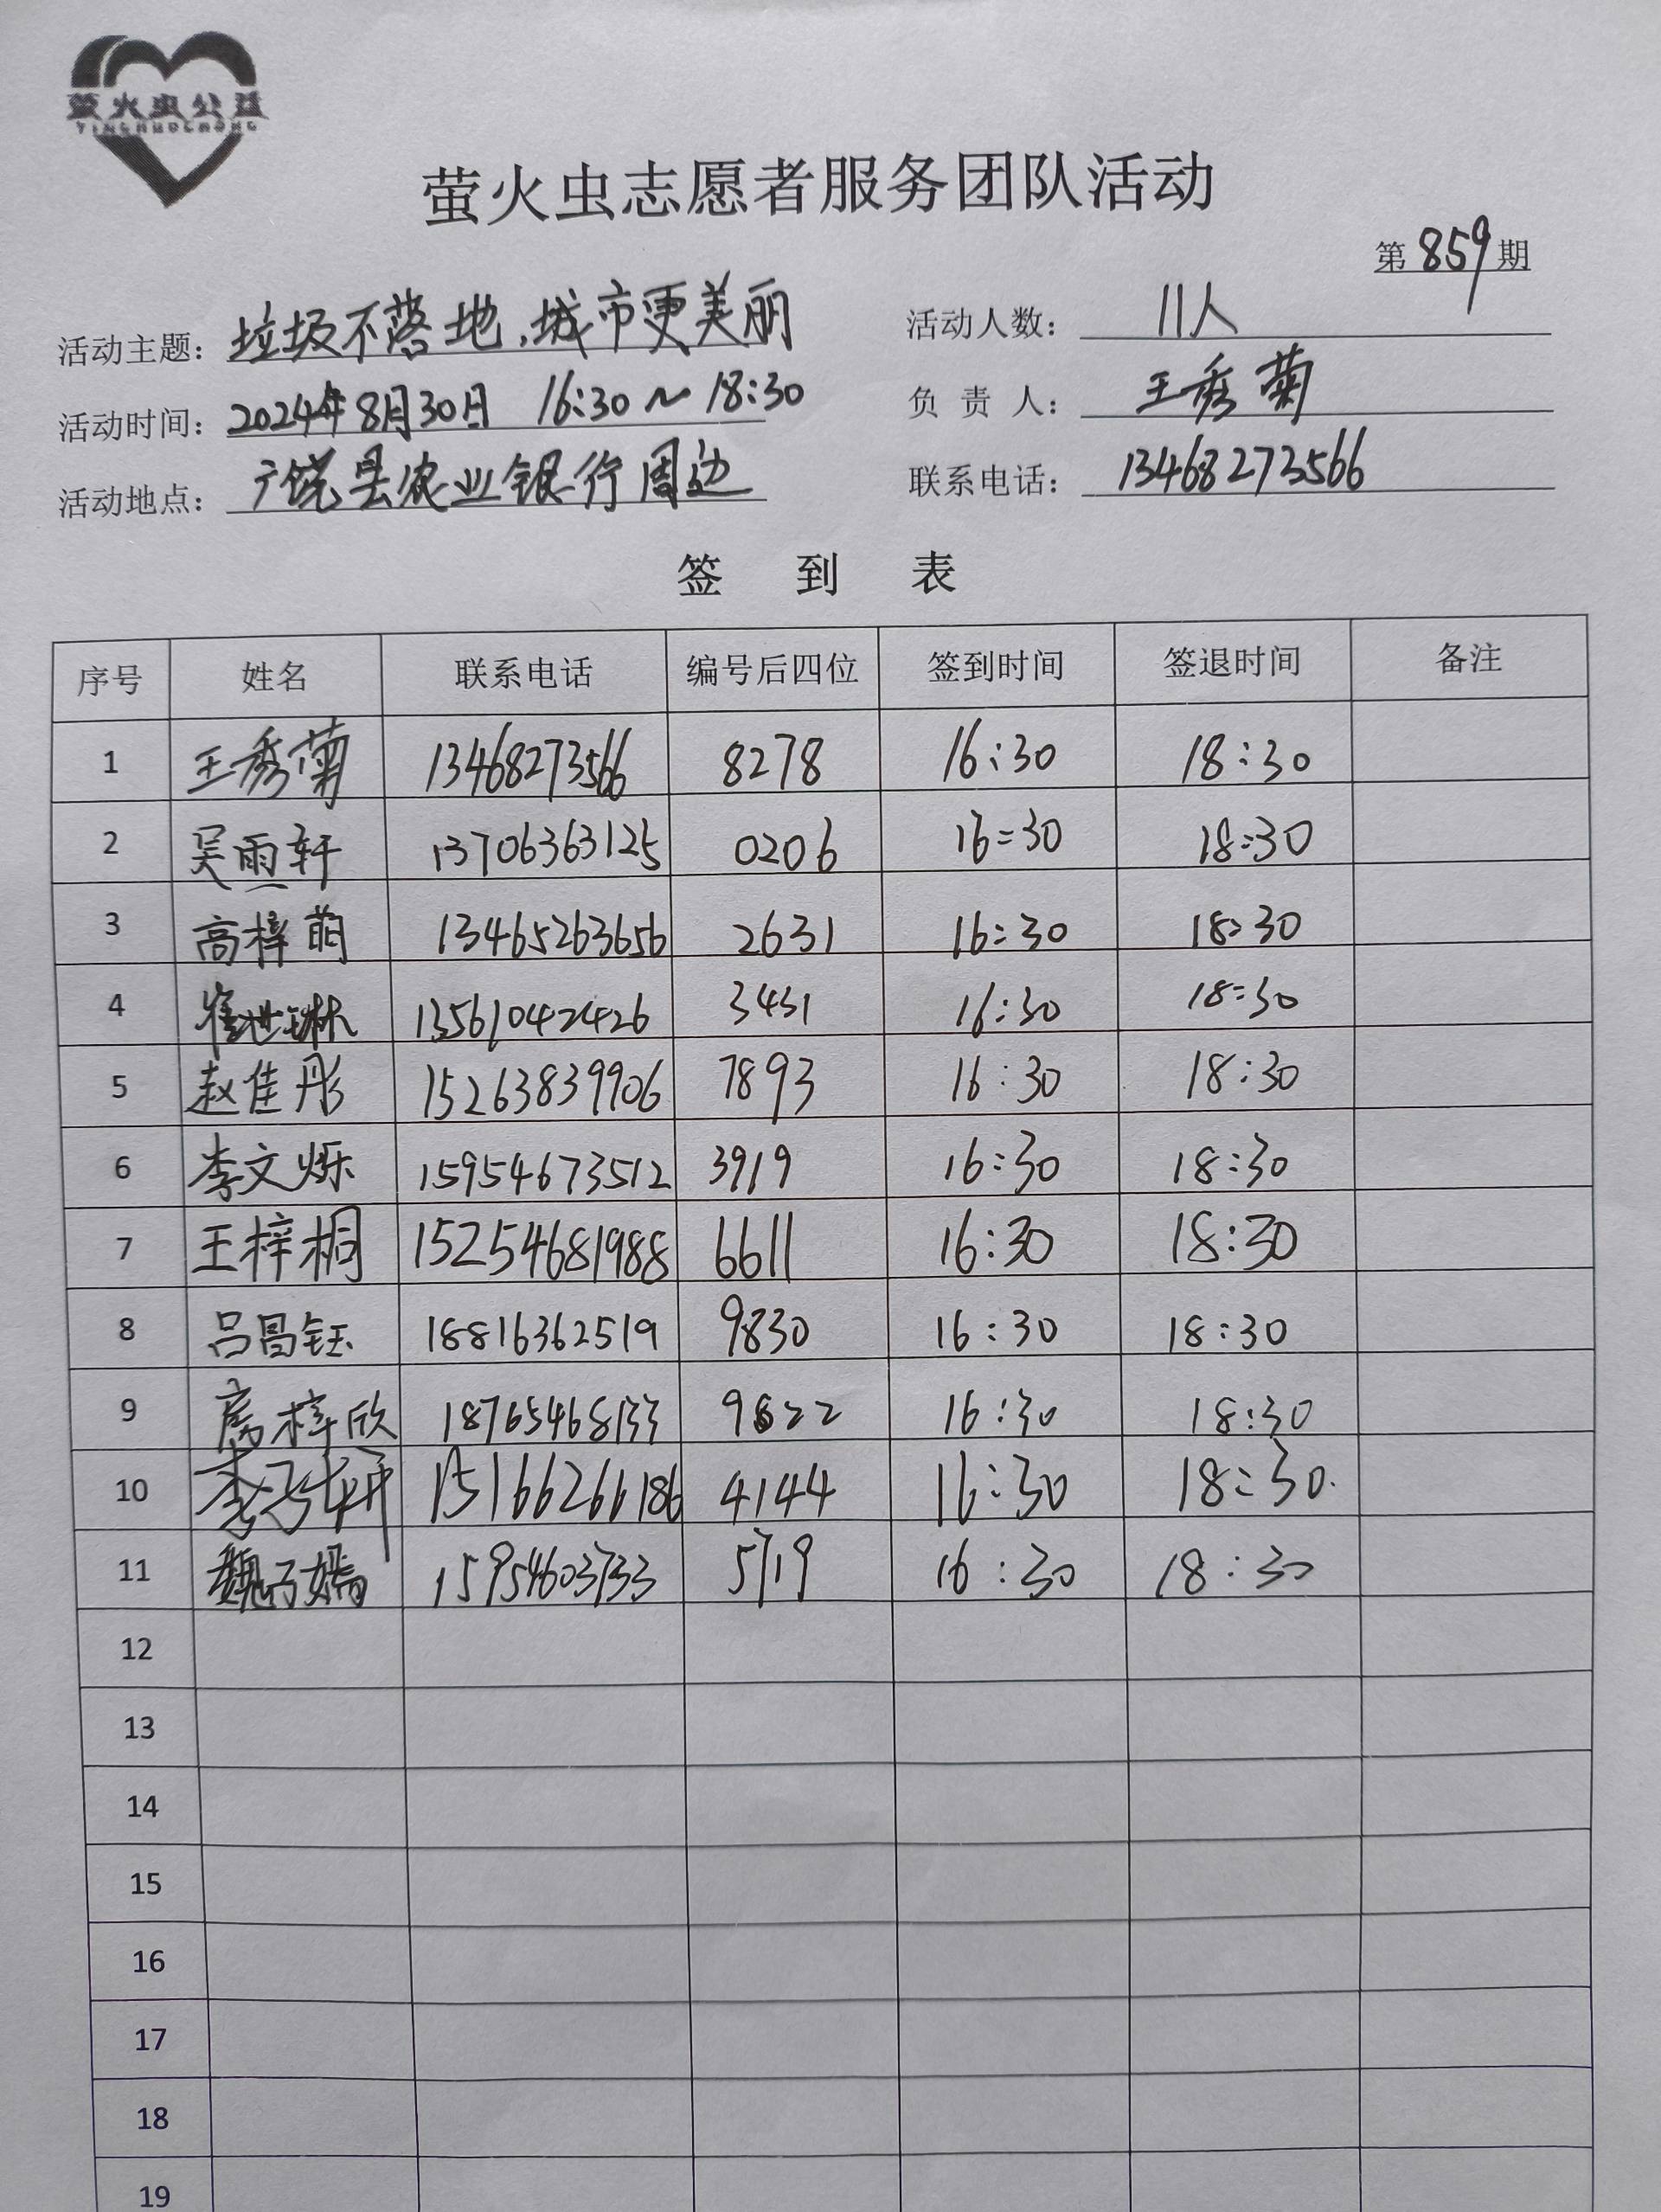 萤火虫公益
YINGHUOCHONG
萤火虫志愿者服务团队活动
第859期
活动主题：垃圾不落地，城市更美丽 活动人数：11人
活动时间：2024年8月30日 16:30～18:30 负责人：王秀菊
活动地点：广饶县农业银行周边 联系电话：13468273566
签到表
序号 姓名 联系电话 编号后四位 签到时间 签退时间 备注
1 王秀菊 13468273566 8278 16:30 18:30
2 吴雨轩 13706363125 0206 16:30 18:30
3 高梓萌 13465263656 2631 16:30 18:30
4 13561042426 3431 16:30 18:30
5 赵佳彤 15263839906 7893 16:30 18:30
6 李文烁 15954673512 3919 16:30 18:30
7 王梓桐 15254681988 6611 16:30 18:30
8 吕昌钰 18816362519 9830 16:30 18:30
9 梓欣 18765468133 9622 16:30 18:30
10 李子妍 15166266186 4144 16:30 18:30
11 魏子嫣 15954603733 5719 16:30 18:30
12
13
14
15
16
17
18
19